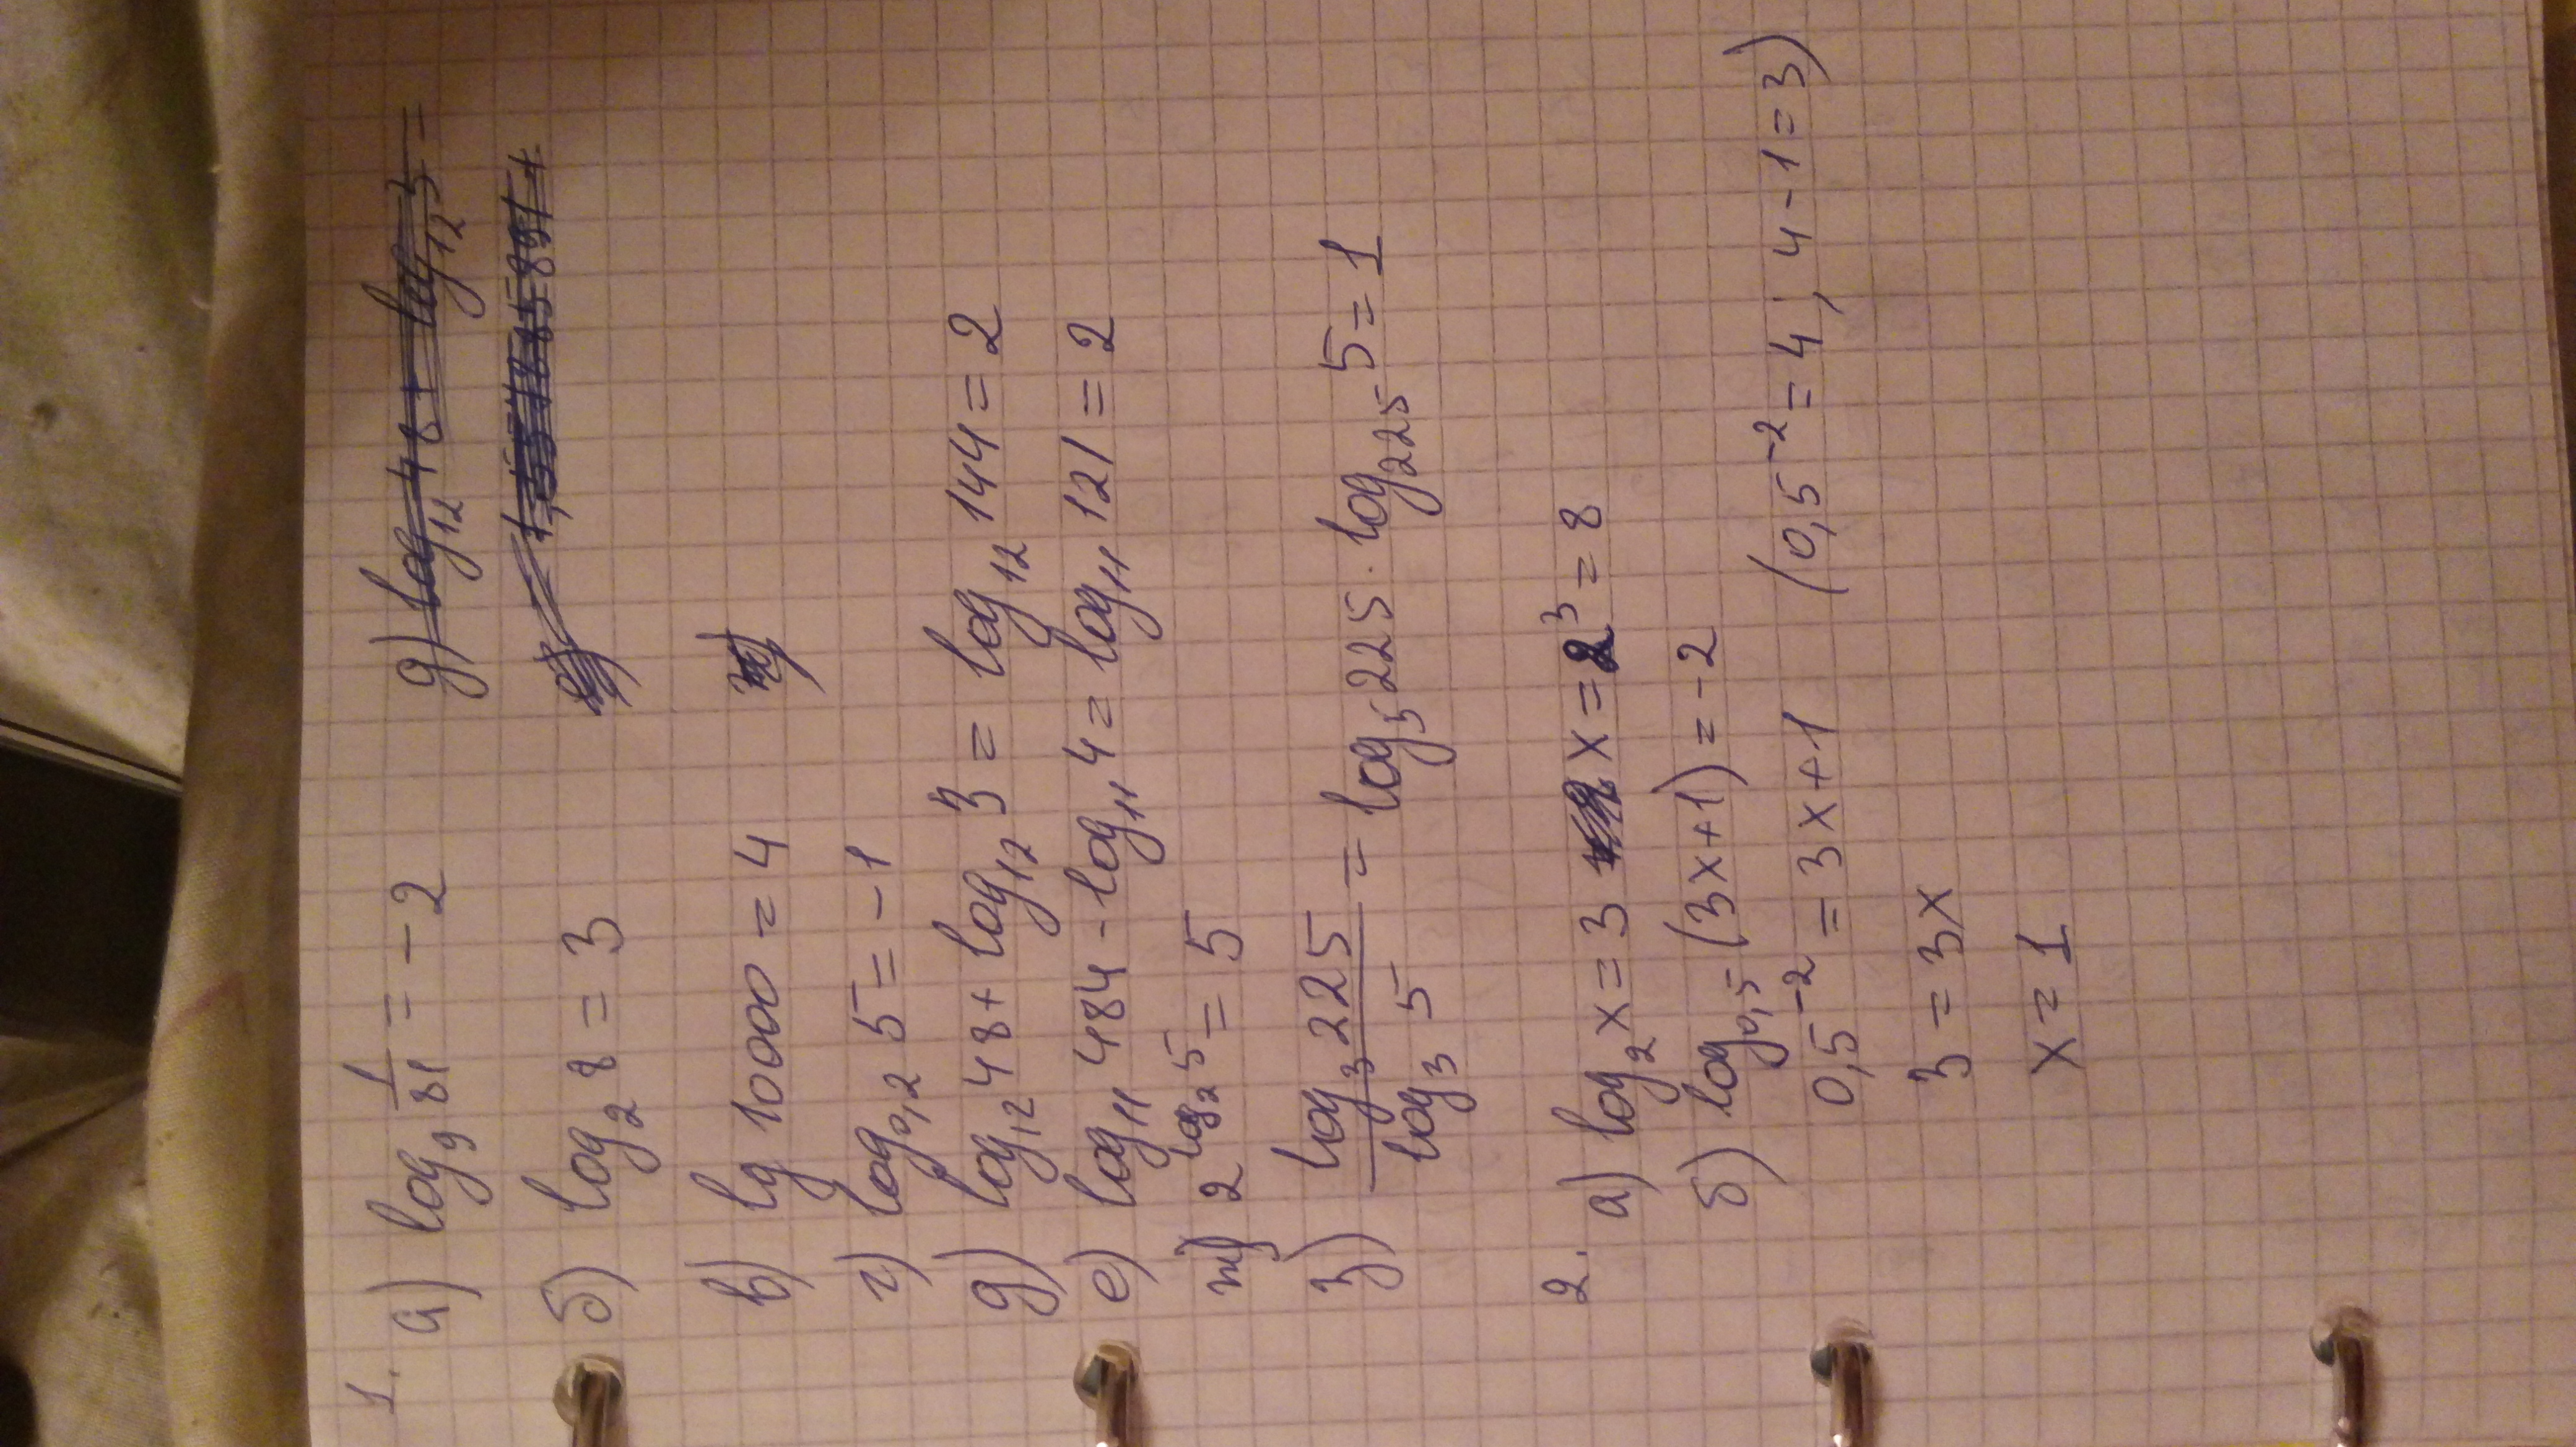 1. а) log₉ 1/81 = -2
б) log₂ 8 = 3
в) lg 10000 = 4
г) log₀,₂ 5 = -1
д) log₁₂ 48 + log₁₂ 3 = log₁₂ 144 = 2
е) log₁₁ 484 - log₁₁ 4 = log₁₁ 121 = 2
ж) 2^log₂5 = 5
з) log₃ 225 / log₃ 5 = log₅ 225 · log₂₂₅ 5 = 1
2. а) log₂ x = 3 x = 2³ = 8
б) log₀,₅ (3x+1) = -2
0,5⁻² = 3x+1 (0,5⁻² = 4; 4-1=3)
3 = 3x
x = 1
д) log₁₂ 48 + log₁₂ 3 =